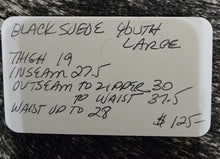 BLACK SUEDE YOUTH
LARGE
THIGH 19
INSEAM 27.5
OUTSEAM TO ZIPPER 30
TO WAIST 37.5
WAIST UP TO 28
$125-